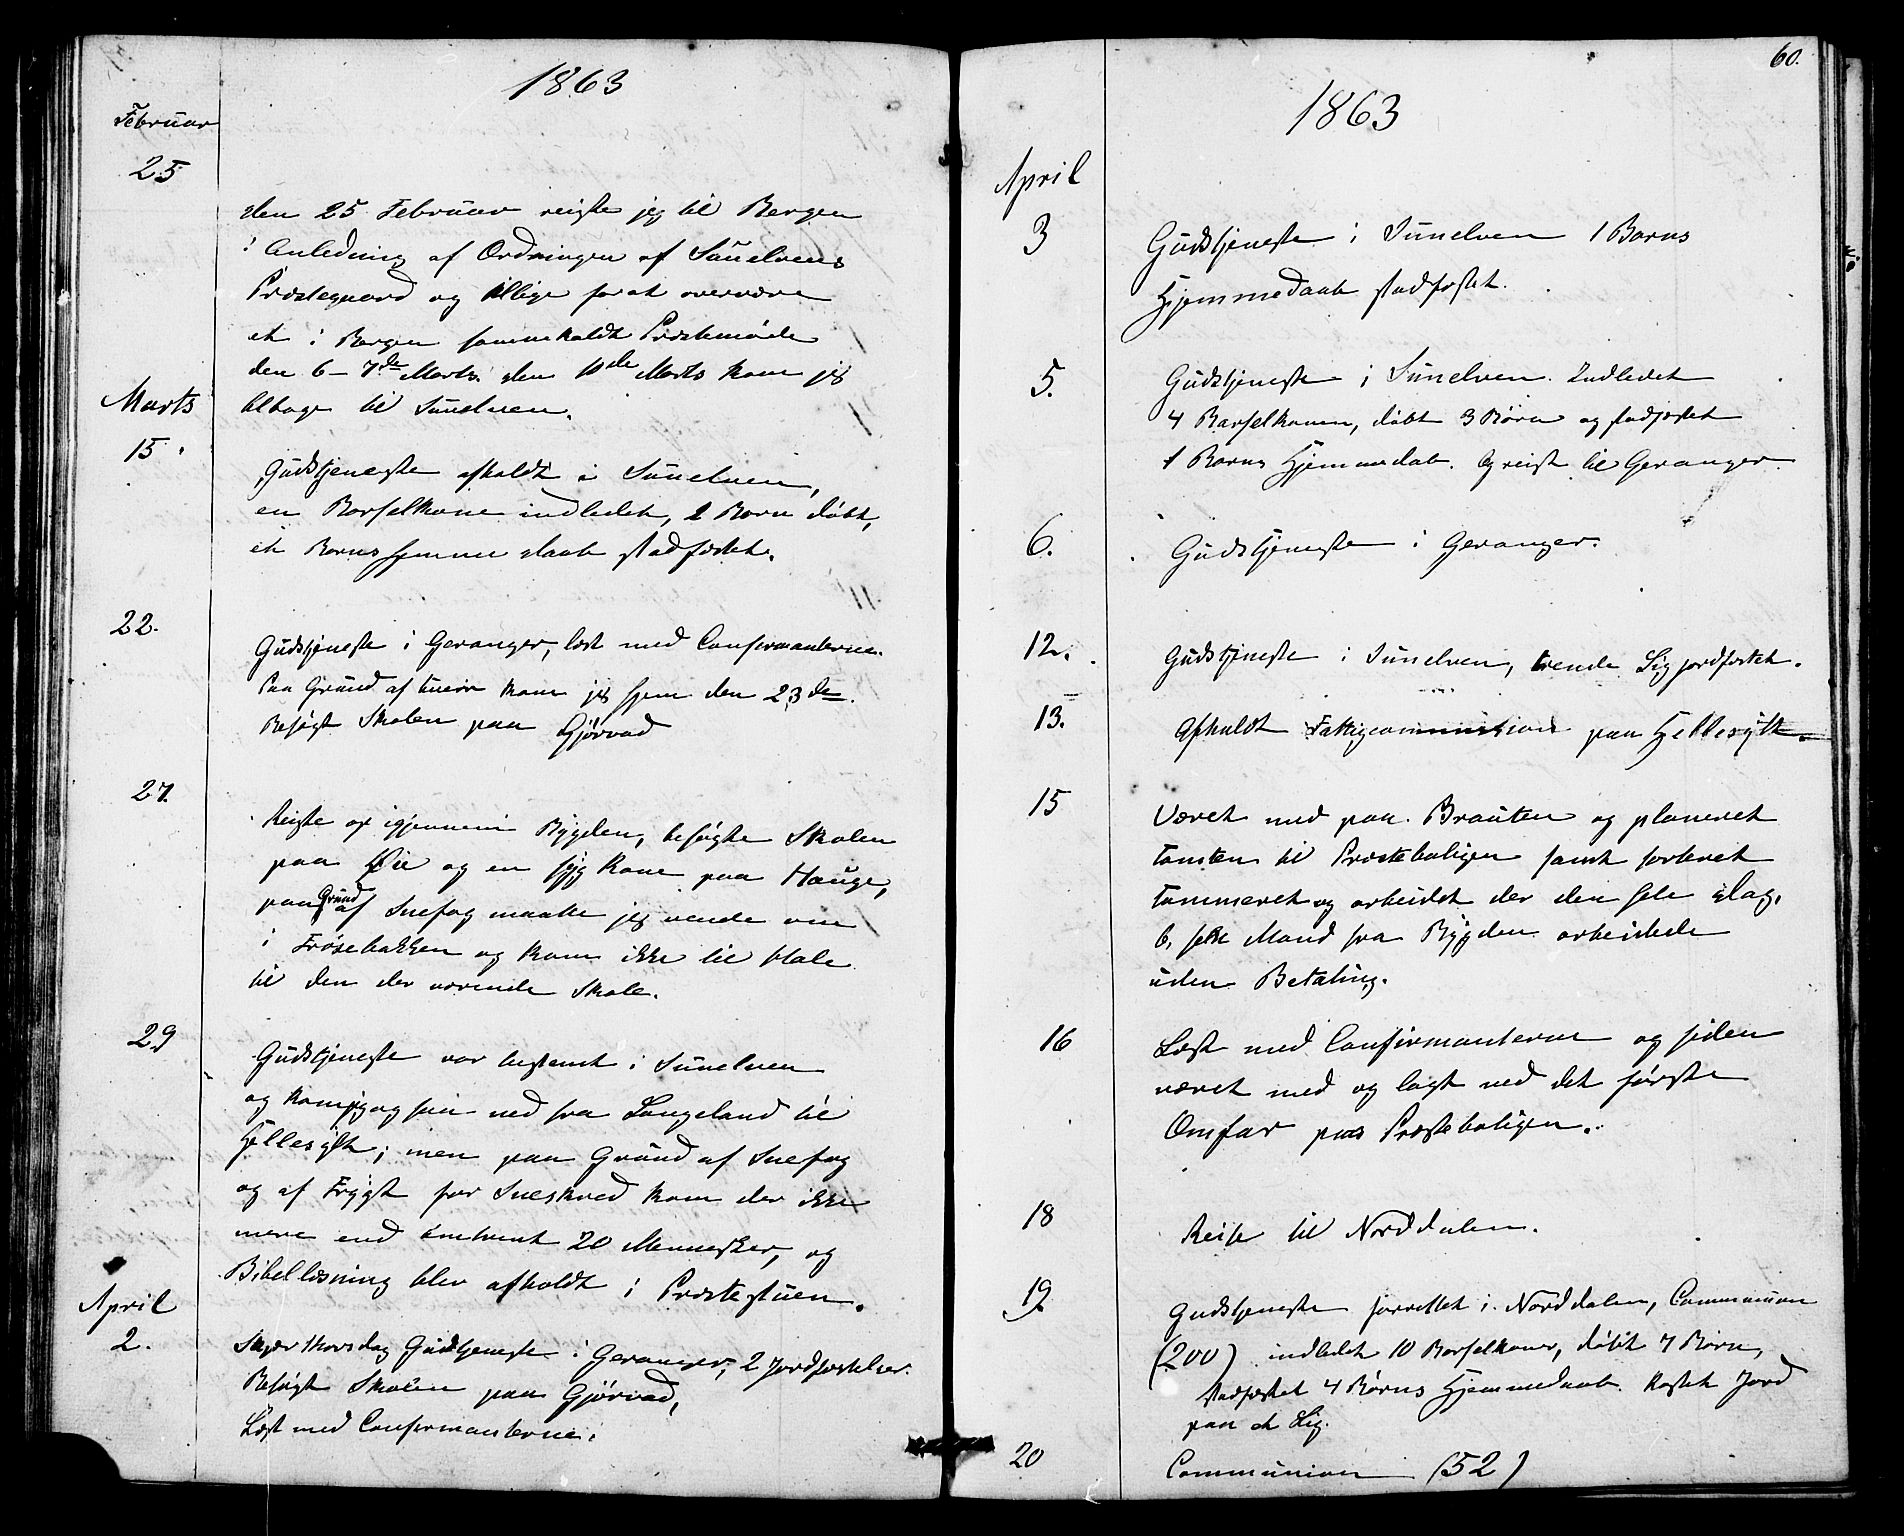 1863
Februar
25
den 25 Februar reiste jeg til Bergen
i Anledning af Ordningen af Sunelvens
Præstegaard og tillige for at overvære
et i Bergen sammekaldt Præstemøde
den 6 – 7de Marts. den 10de Marts kom jeg
tilbage til Sunelven.
Marts
15.
Gudstjeneste afholdt i Sunelven,
en Barselkone indledet, 2 Børn døbt,
et Barns hjemme daab stadfæstet.
22.
Gudstjeneste i Geranger, læst med Confirmanterne.
Paa Grund af kom jeg hjem den 23de.
Besøgt Skolen paa Gjørvad
27.
Reiste op igjennem Bygden, besøgte Skolen
paa Øie og en syg Kone paa Hauge,
paa Grund af Snefog maatte jeg vende om
i Frøsebakken og kom ikke til
til den der værende Skole.
29
Gudstjeneste var bestemt i Sunelven
og kom jeg ogsaa ned fra Langeland til
Hellesylt; men paa Grund af Snefog
og af Frygt for Sneskred kom der ikke
mere end omtrent 20 Mennesker, og
Bibellæsning blev afholdt i Præstestuen.
April
2.
Skjær thorsdag Gudstjeneste i Geranger, 2 Jordfæstelser.
Besøgt Skolen paa Gjørvad,
Læst med Confirmanterne.
60.
1863
April
3
Gudstjeneste i Sunelven 1 Barns
Hjemmedaab stadfæstet.
5.
Gudstjeneste i Sunelven. Indledet
4 Barselkoner, døbt 3 Børn og stadfæstet
1 Barns Hjemmedab. Og reist til Geranger.
6.
Gudstjeneste i Geranger.
12.
Gudstjeneste i Sunelven, trende Lig jordfæstet.
13.
Afholdt Fattigcommission paa Hellesylt.
15
Været med paa Brauten og planeret
Tomten til Præsteboligen samt sorteret
Tømmeret og arbeidet der den hele Dag.
6, sex Mand fra Bygden arbeidede
uden Betaling.
16
Læst med Confirmanterne og siden
været med og lagt ned det første
Omfar paa Præsteboligen.
18
Reise til Norddalen.
19.
Gudstjeneste forrettet i Norddalen, Communion
(200) indledet 10 Barselkoner, døbt 7 Børn,
stadfæstet 4 Børns Hjemmedaab. Kastet Jord
paa et Lig.
20
Communion (52)